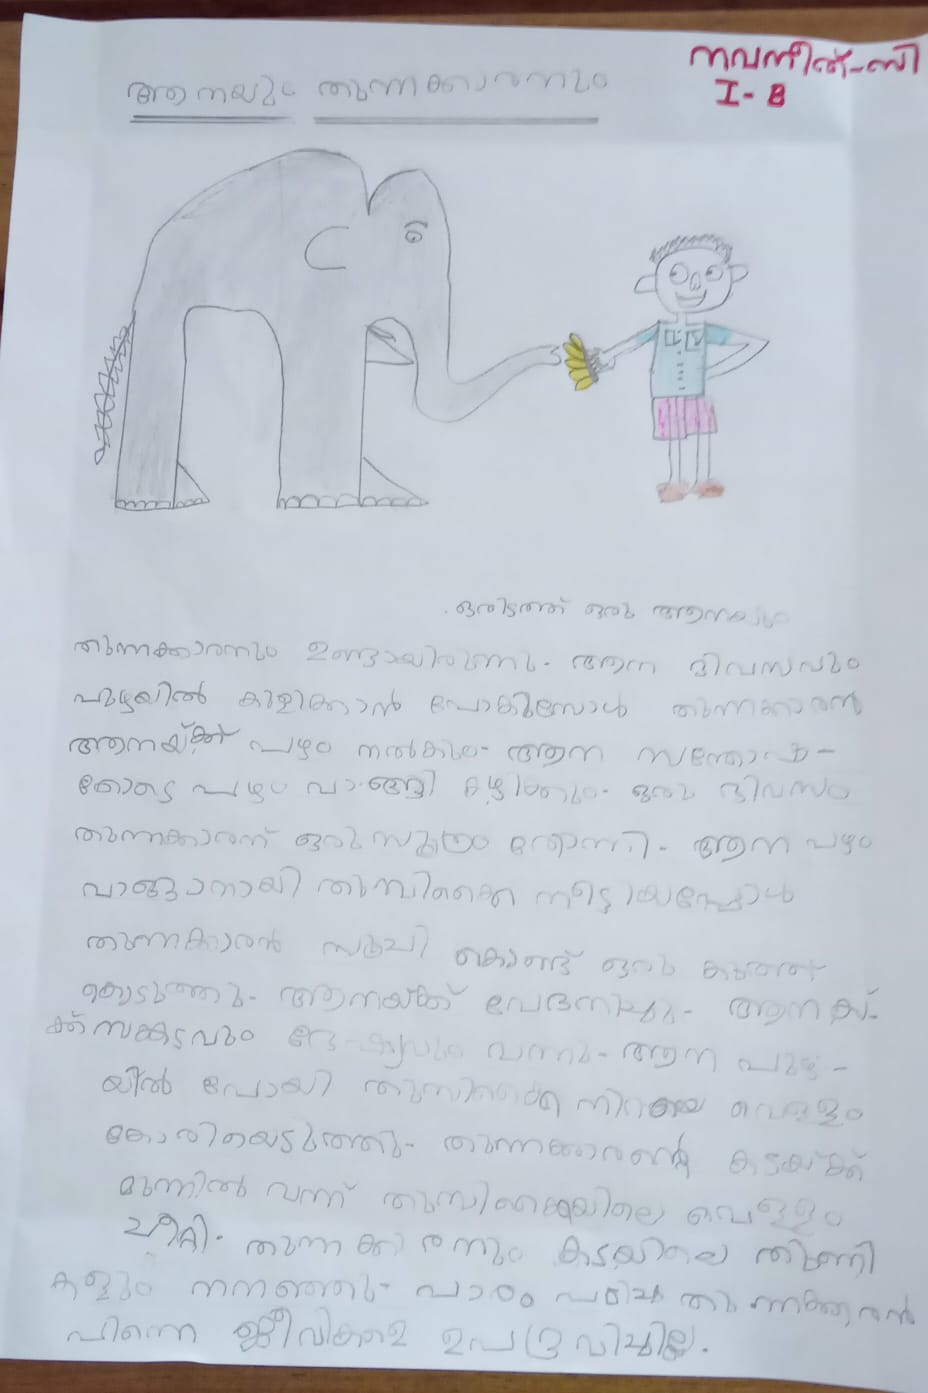 നവനീത്-സി
I - B
ആനയും തുന്നക്കാരനും
ഒരിടത്ത് ഒരു ആനയും
തുന്നക്കാരനും ഉണ്ടായിരുന്നു. ആന ദിവസവും
പുഴയിൽ കുളിക്കാൻ പോകുമ്പോൾ തുന്നക്കാരൻ
ആനയ്ക്ക് പഴം നൽകും. ആന സന്തോഷ-
ത്തോടെ പഴം വാങ്ങി കഴിക്കും. ഒരു ദിവസം
തുന്നക്കാരന് ഒരു സൂത്രം തോന്നി. ആന പഴം
വാങ്ങാനായി തുമ്പിക്കൈ നീട്ടിയപ്പോൾ
തുന്നക്കാരൻ സൂചി കൊണ്ട് ഒരു കുത്ത്
കൊടുത്തു. ആനയ്ക്ക് വേദനിച്ചു. ആനയ്-
ക്ക് സങ്കടവും ദേഷ്യവും വന്നു. ആന പുഴ-
യിൽ പോയി തുമ്പിക്കൈ നിറയെ വെള്ളം
കോരിയെടുത്തു. തുന്നക്കാരന്റെ കടയ്ക്ക്
മുന്നിൽ വന്ന് തുമ്പിക്കൈയിലെ വെള്ളം
ചീറ്റി. തുന്നക്കാരനും കടയിലെ തുണി
കളും നനഞ്ഞു. പാഠം പഠിച്ച തുന്നക്കാരൻ
പിന്നെ ജീവികളെ ഉപദ്രവിച്ചില്ല.